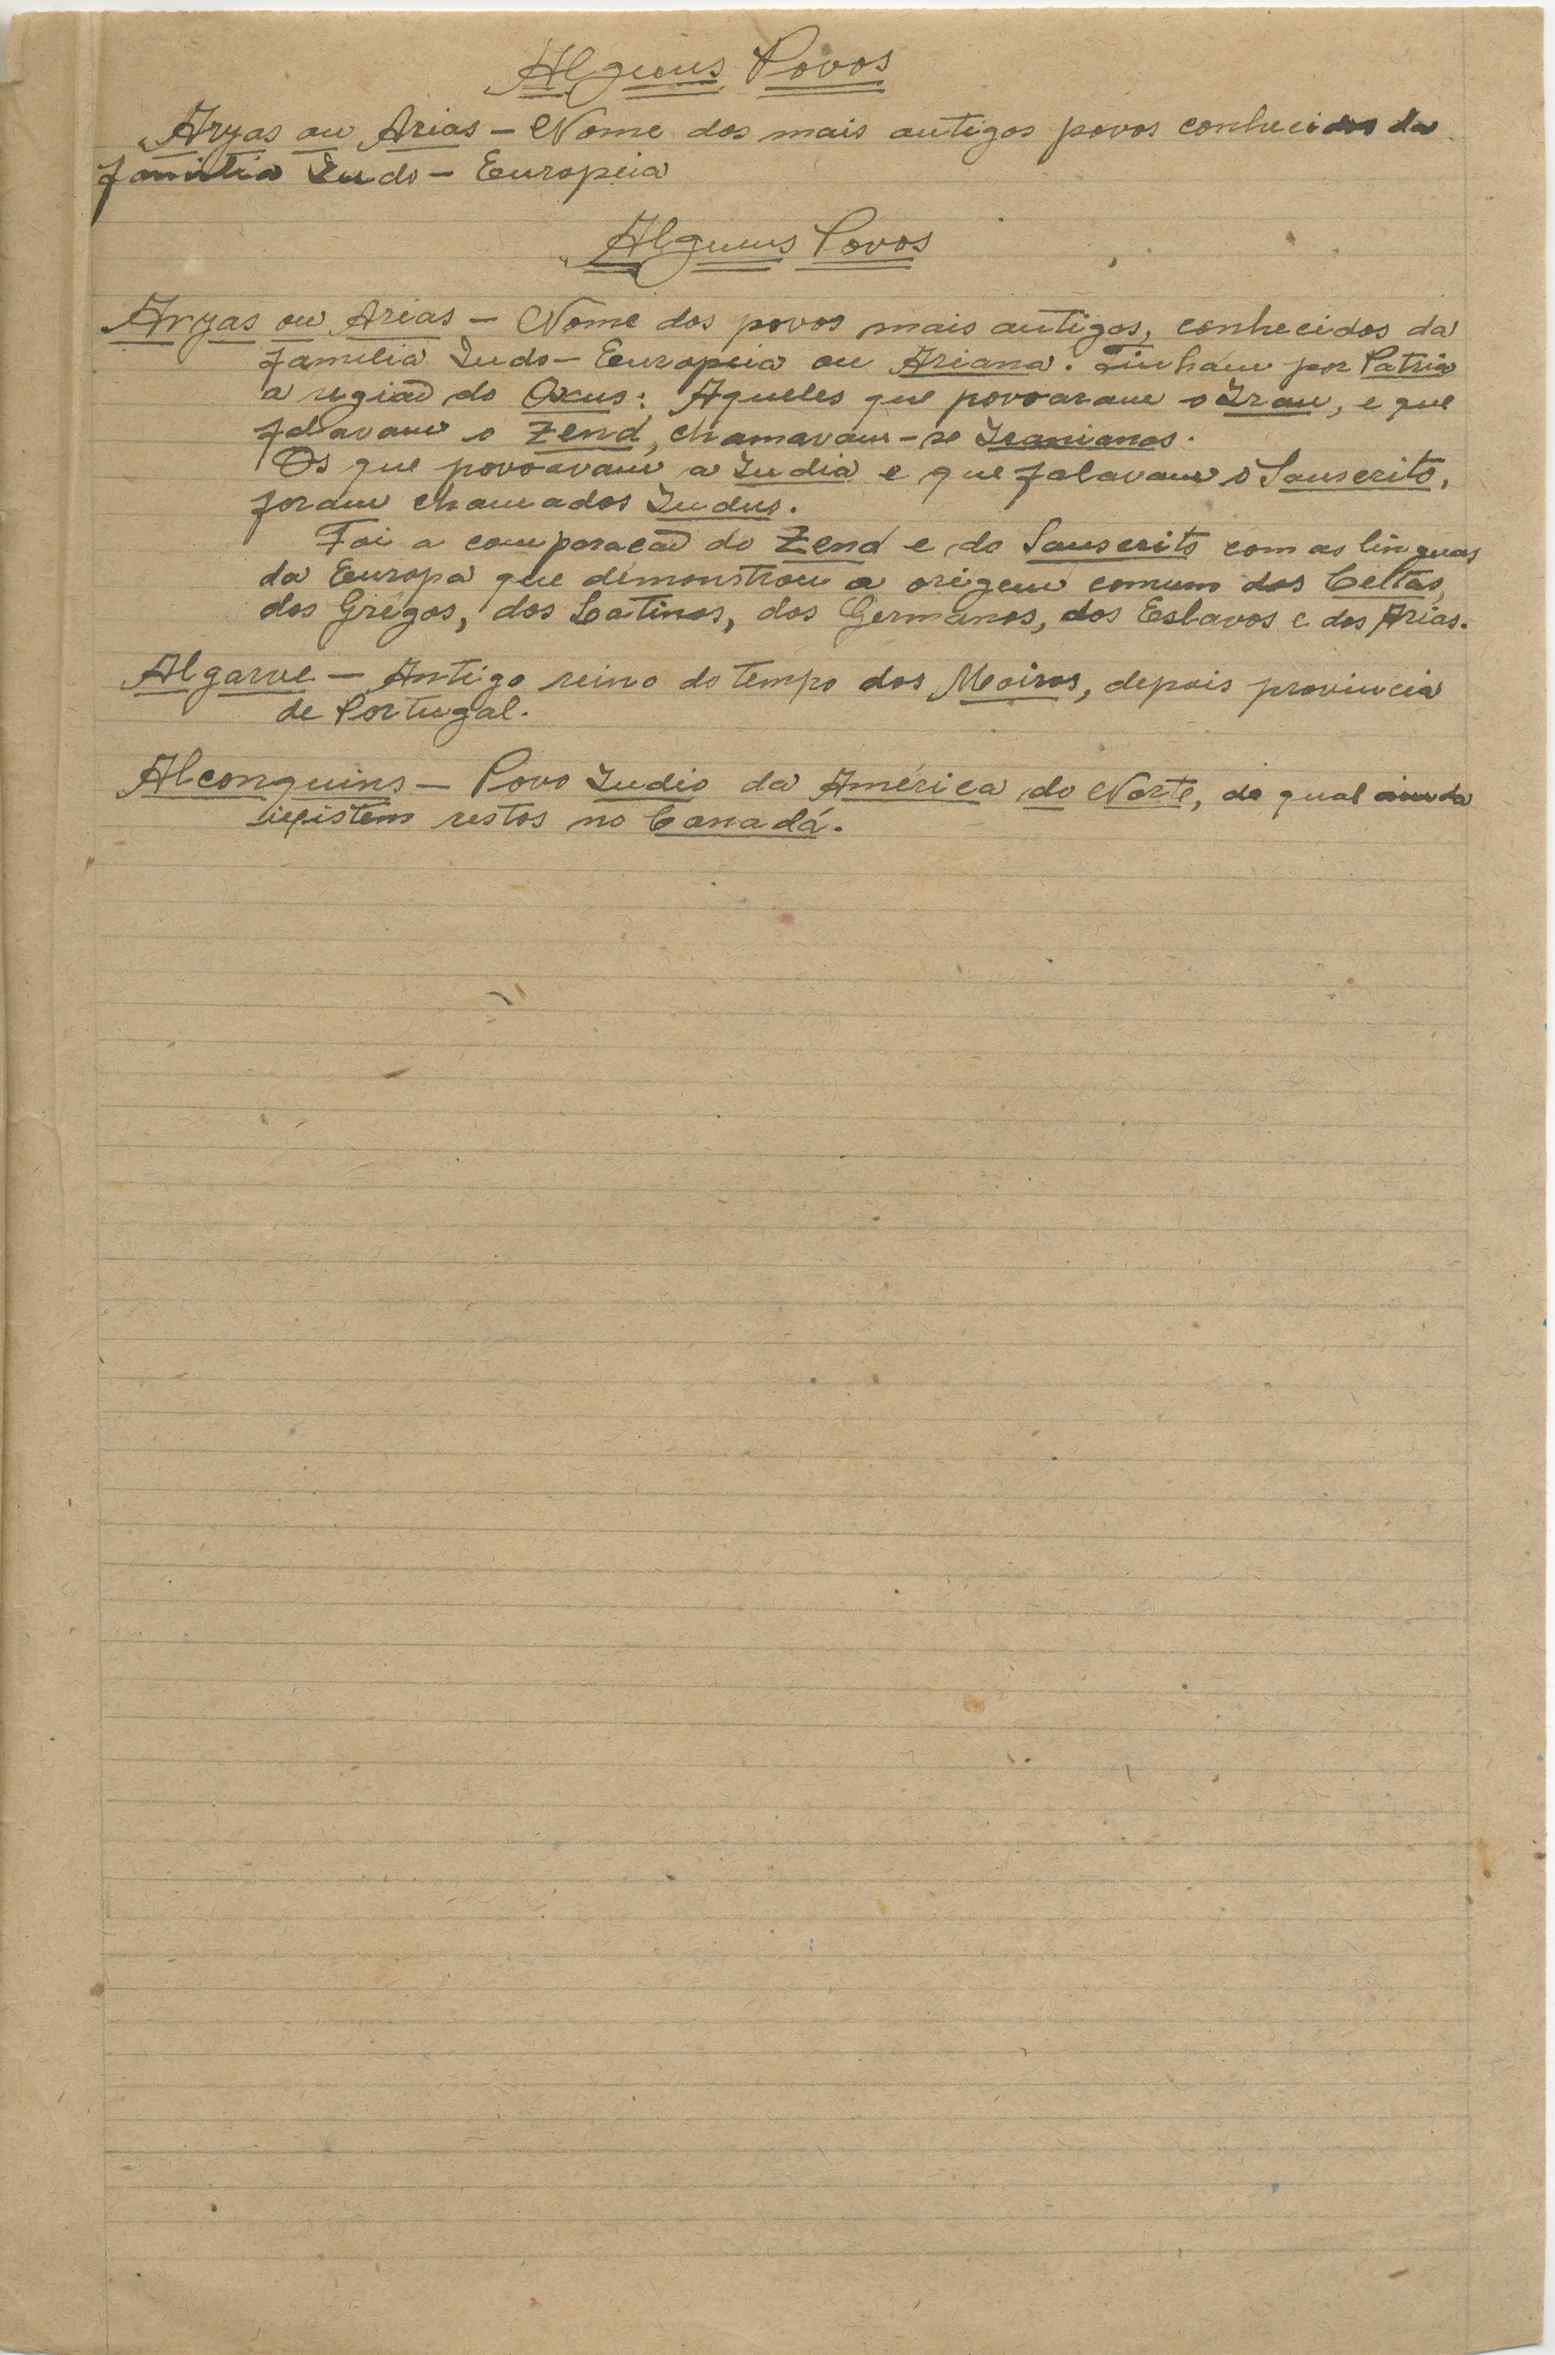 Alguns Povos
Aryas ou Arias - Nome dos mais antigos povos conhecidos da
familia Indo - Europeia
Alguns Povos
Aryas ou Arias - Nome dos povos mais antigos, conhecidos da
familia Indo - Europeia ou Ariana. Tinham por Patria
a região do Oxus: Aqueles que povoaram o Iran, e que
falavam o Zend, chamavam-se Iranianos.
Os que povoavam a India e que falavam o Sanscrito,
foram chamados Indus.
Foi a comparação do Zend e do Sanscrito com as linguas
da Europa que demonstrou a origem comum dos Celtas,
dos Gregos, dos Latinos, dos Germanos, dos Eslavos e dos Arias.
Algarve - Antigo reino do tempo dos Moiros, depois provincia
de Portugal.
Alconquins - Povo Indio da América do Norte, do qual ainda
existem restos no Canadá.